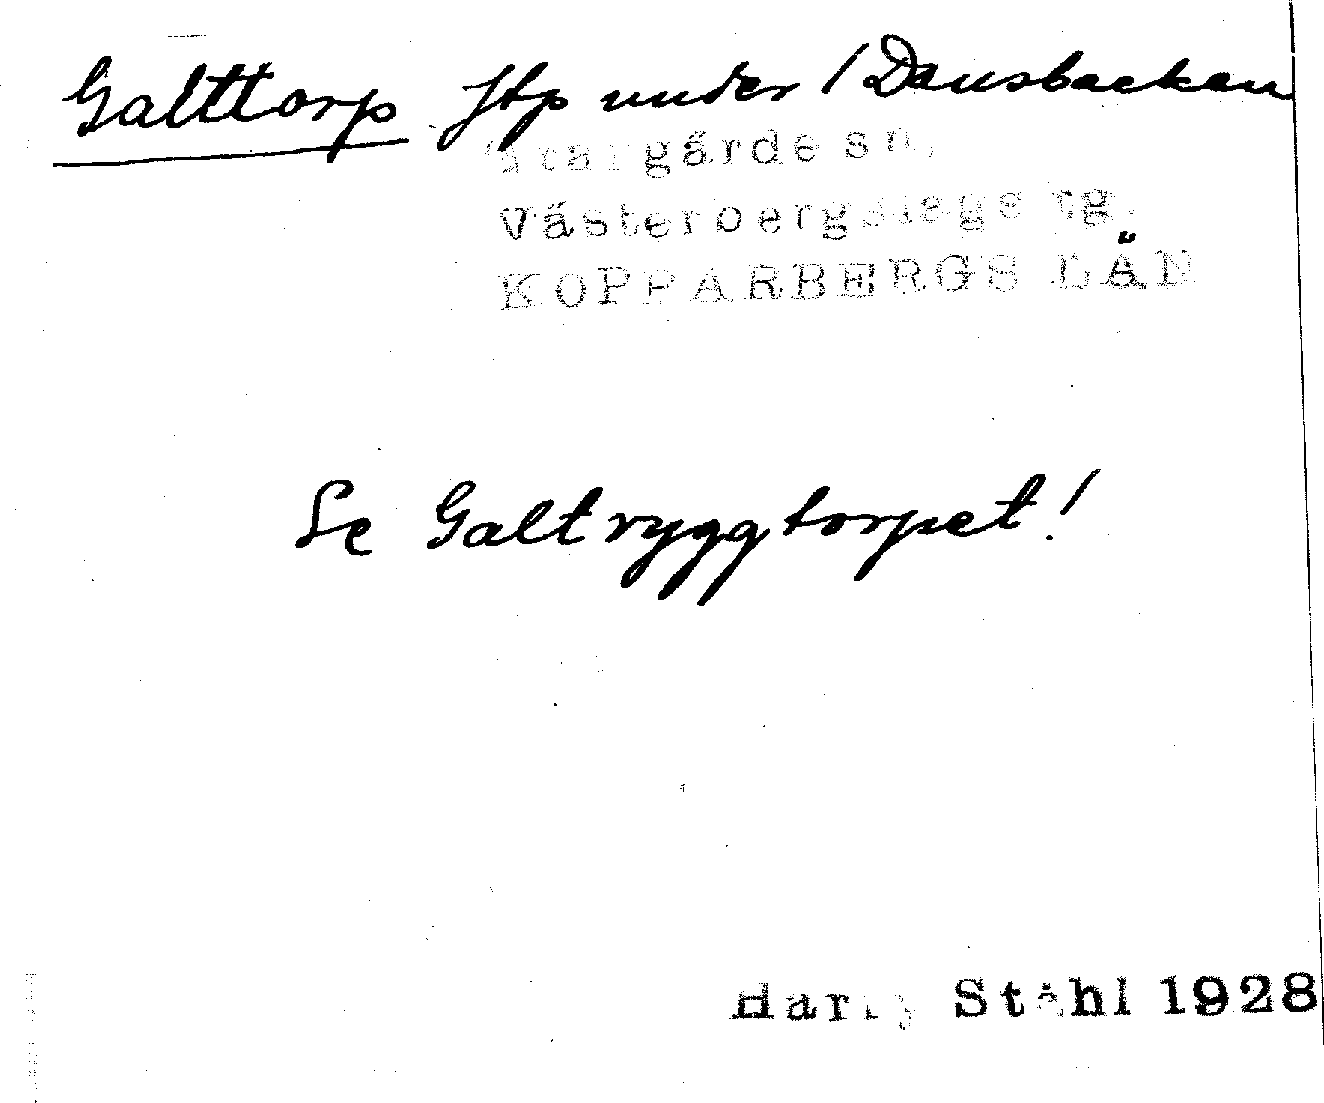 Galttorp ftp under / Dansbackan
Stora gärde sn,
Västerbergslags tg.
KOPPARBERGS LÄN
Se Galtryggtorpet!
Harry Ståhl 1928